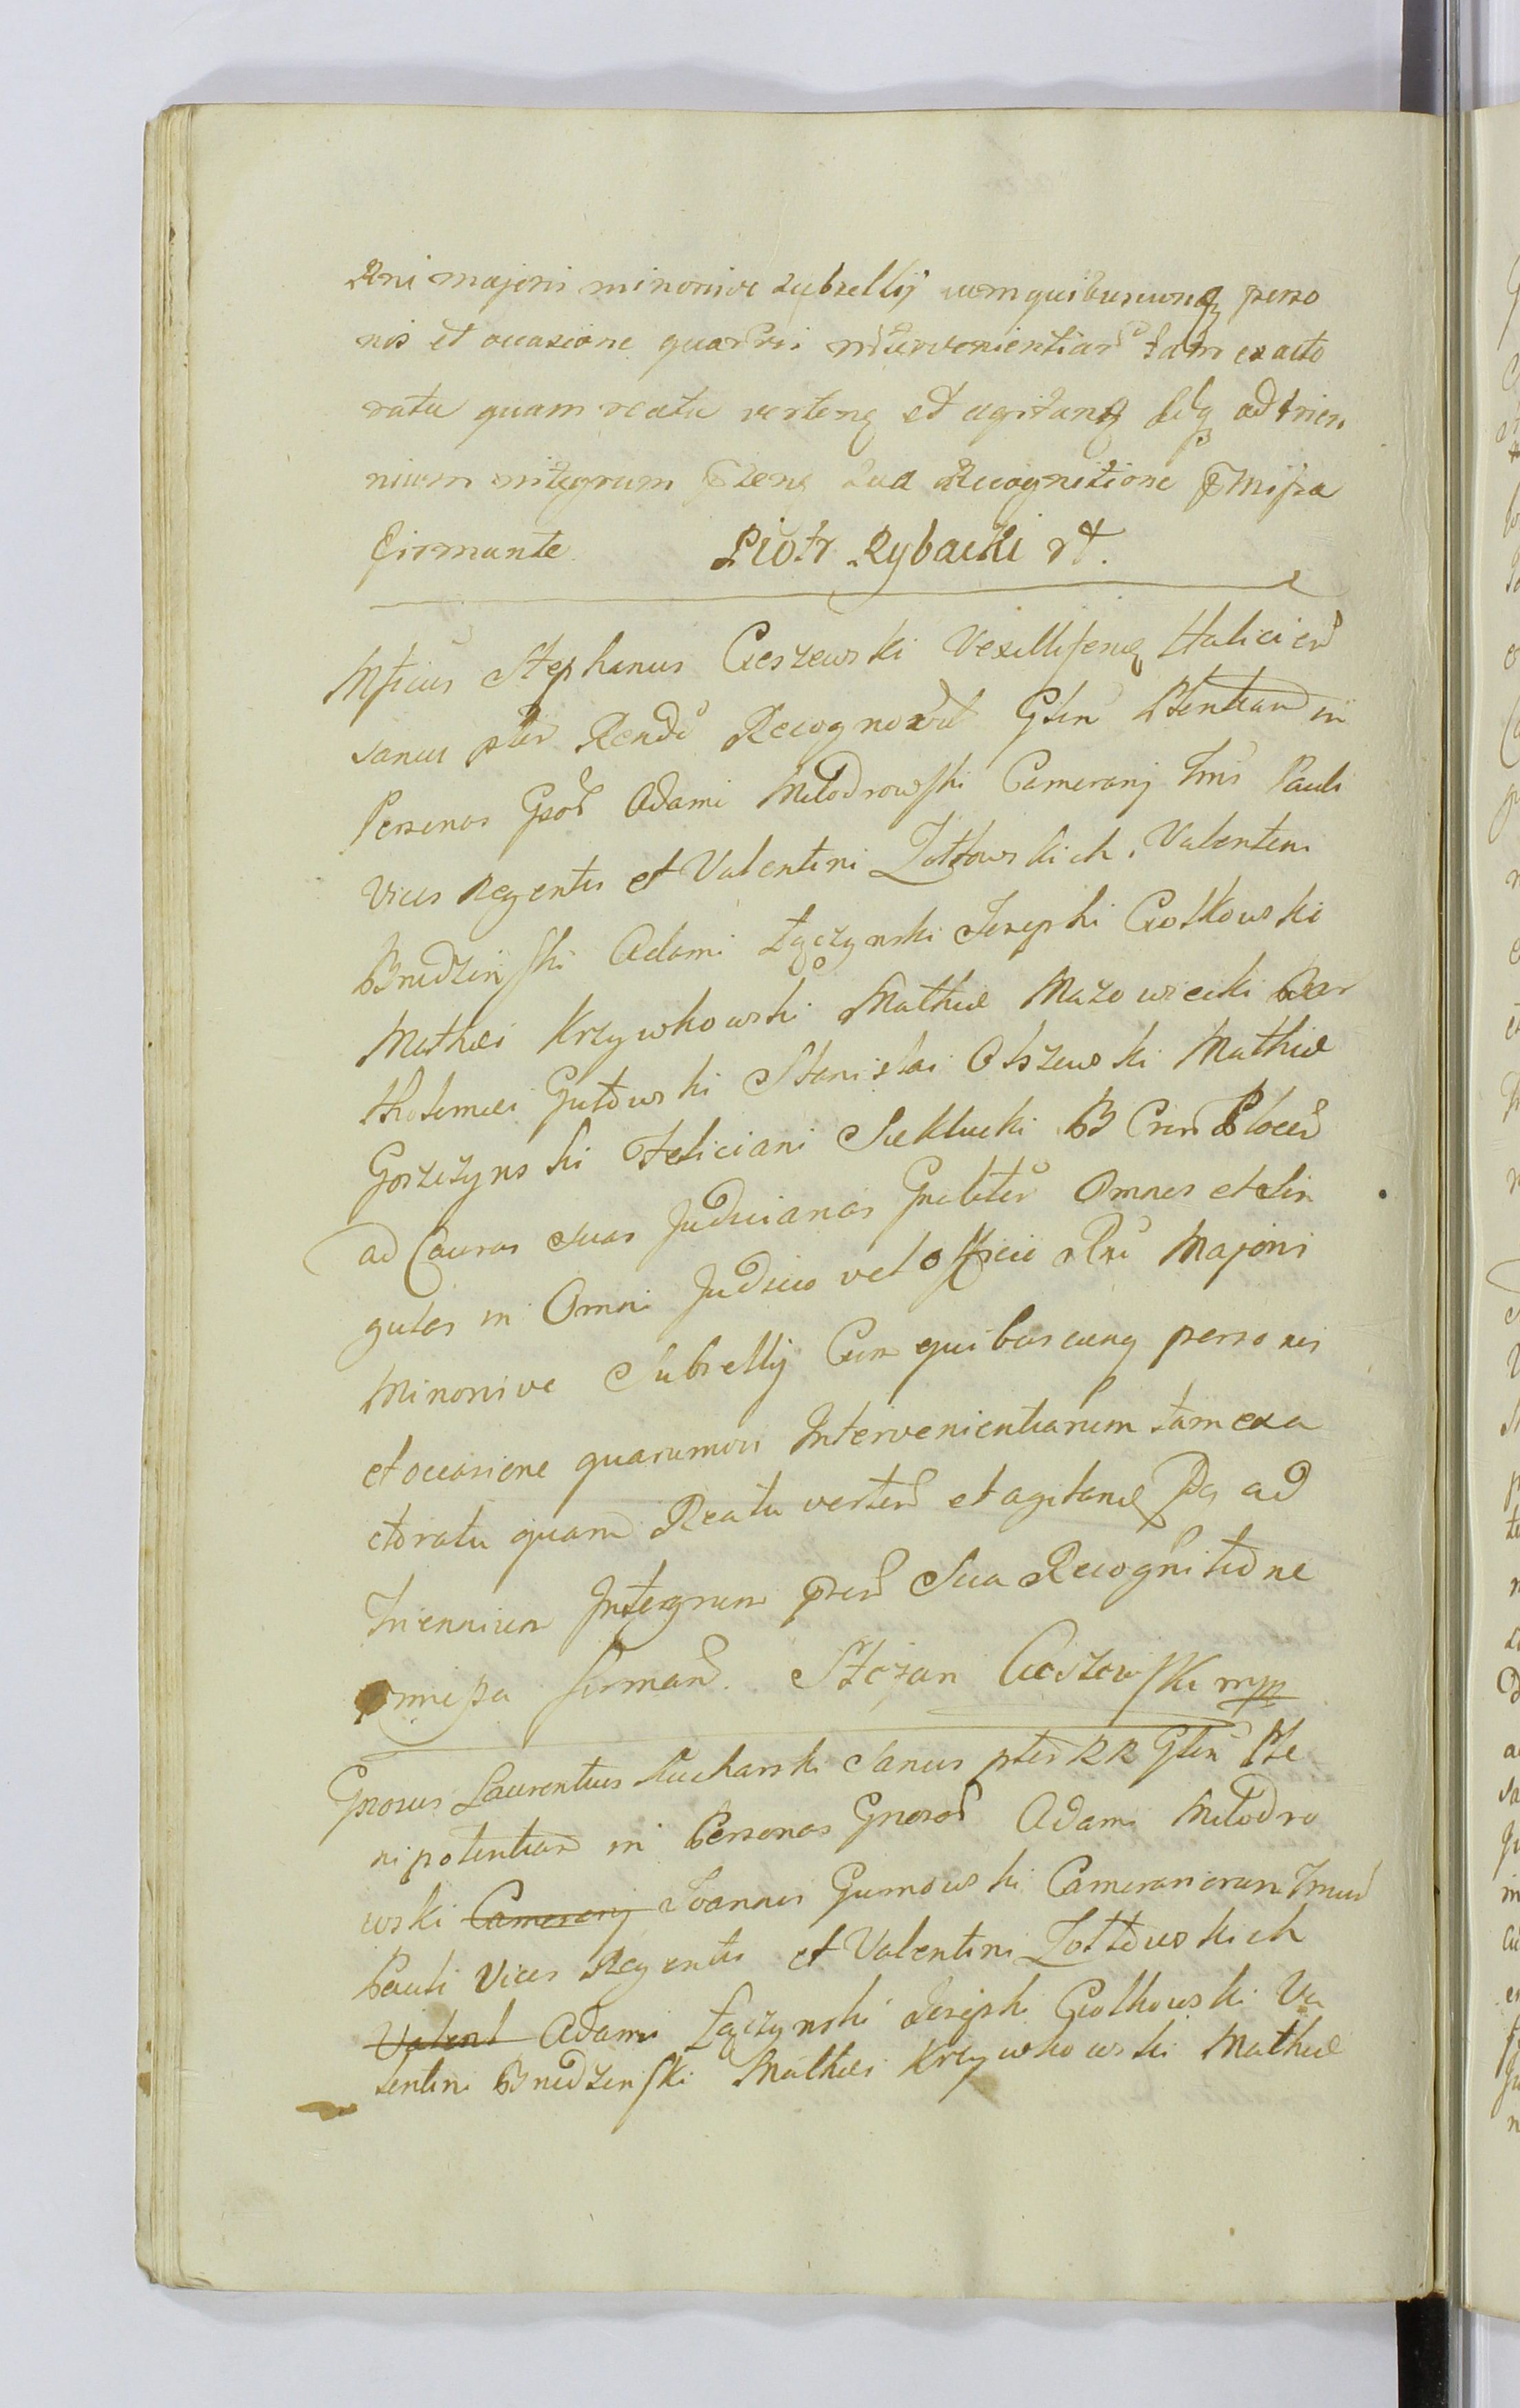 Rni majoris minorisve subsellij cum quibuscunq perso
nis et occasione quarvis intervenientiar tam ex acto
ratu quam reatu verteñ et agitanđ ad trien
nium integrum sua Recognitione
firmante. Piotr Rybacki
Mficus Stephanus Cieszewski Vexilliferiđ Halicieñ
sanus pter Rendo Recognovit Glen Plentiam in
Personas Gsor Adami Młodrowski Cameranj Tmis Pauli
Vices Regentis et Valentini Zołtowskich. Valentini
Brudzinski Adami Łączynski Josephi Ciołkowski
Mathæi Krzywkowski Mathiæ Mazowiecki Bar
tholomæi Gutowski Stanislai Olszewski Mathiæ
Gorzezynski Feliciani Sieklucki B Crer Płoceñ
ad Causas suas Judiciarias Gnaliter Omnes et sin
gulas in Omni Judicio vel officio Rni Majoris
Minorisve Subsellij Cum quibuscunq personis
et occasione quarumvis Intervenientiarum tam exa
ctoratu quam Reatu verteñ et agitanđ ad
Triennium Integrum Sua Recognitione
firmanđ. Stefan Cieszewski mp
Gnosus Laurentius Kucharski Sanus pter RR Glen Ple
nipotentiam in Personas Gnosor Adami Młodro
wski Cameranj Joannis Gumowski Camerariorum Tmuor
Pauli Vices Regentis et Valentini Zołtowskich
Valent Adami Łączynski Josephi Ciołkowski Va
lentini Brudzenski Mathæi Krzywkowski Mathiæ